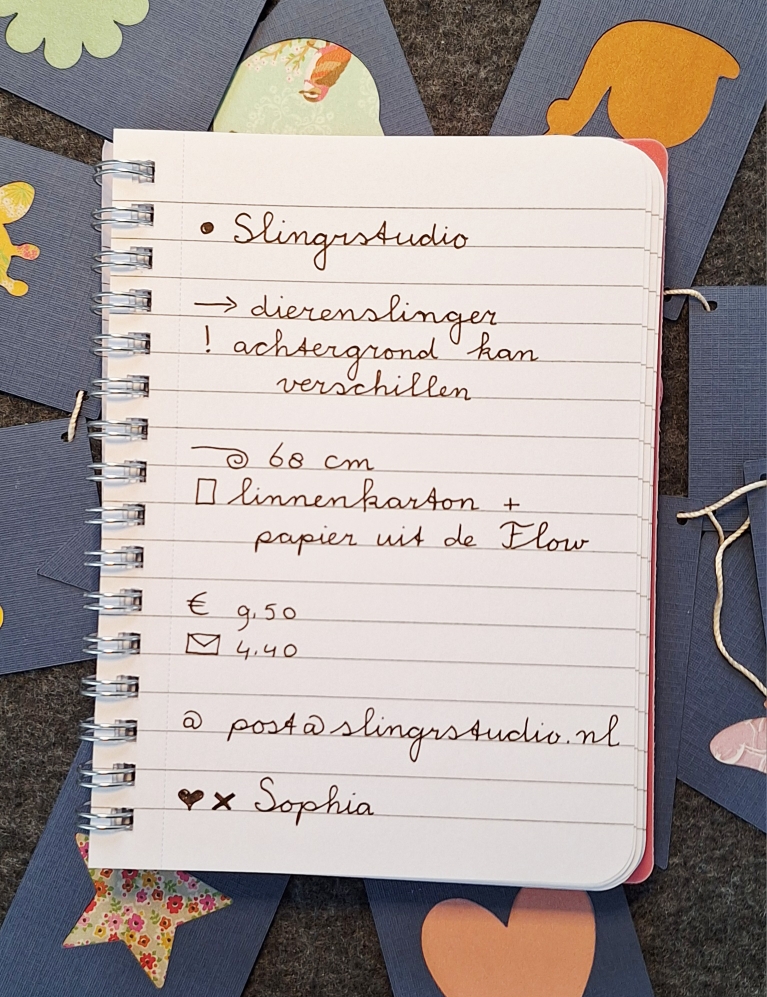 • Slingrstudio
→ dierenslinger
! achtergrond kan
verschillen
68 cm
linnenkarton +
papier uit de Flow
€ 9.50
4.40
@ post@slingrstudio.nl
♥ × Sophia